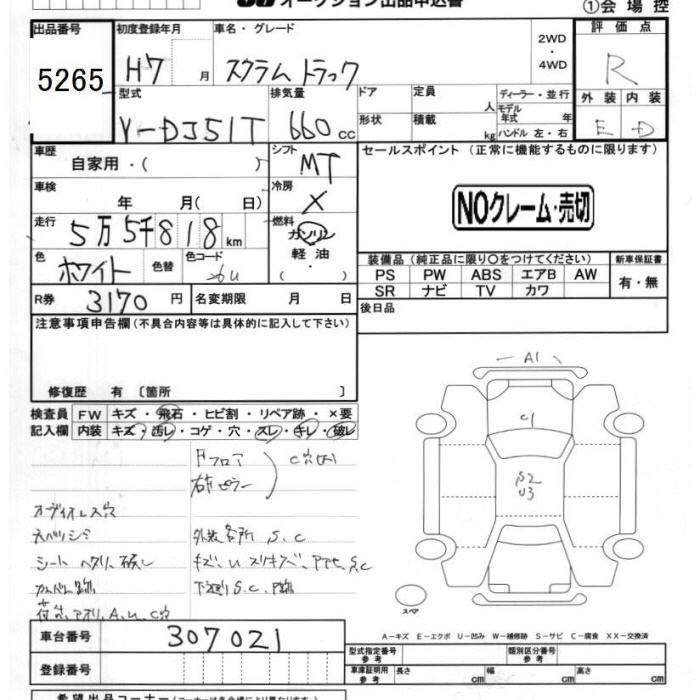 オークション出品申込書
①会場控
出品番号 初度登録年月 車名・グレード 2WD ・ 4WD 評価点
5265 H7 月 スクラム トラック R
型式 排気量 ドア 定員 人 ディーラー・並行 外装 内装
V-DJ51T 660 cc 形状 積載 kg モデル年式 年 ハンドル 左・右 E D
車歴 自家用・( ) シフト MT セールスポイント (正常に機能するものに限ります)
車検 年 月( 日) 冷房 X
NOクレーム・売切
走行 5万5千818km 燃料 ガソリン 軽油 ( ・ )
色 ホワイト 色替 色コード 26U
装備品 (純正品に限り○をつけてください) 新車保証書
PS PW ABS エアB AW 有・無
SR ナビ TV カワ
R券 3170 円 名変期限 月 日
後日品
注意事項申告欄(不具合内容等は具体的に記入して下さい)
修復歴 有 〔箇所 〕
検査員 FW キズ・飛石・ヒビ割・リペア跡・×要
記入欄 内装 キズ・汚レ・コゲ・穴・スレ・キレ・破レ
A1
C1
S2
U3
Fフロア
右ピラー
C穴(大)
オーディオレス穴
ネバリジミ
外装各所 S、C
シート ヘタリ、破レ
キズ、U
下廻りS、C、
A、U、C穴
スペア
A−キズ E−エクボ U−凹み W−補修跡 S−サビ C−腐食 XX−交換済
車台番号 307021
型式指定番号 参考 類別区分番号 参考
登録番号
車庫証明用 参考 長さ cm 幅 cm 高さ cm
希望出品コーナー(コーナーは各会場により異なります)